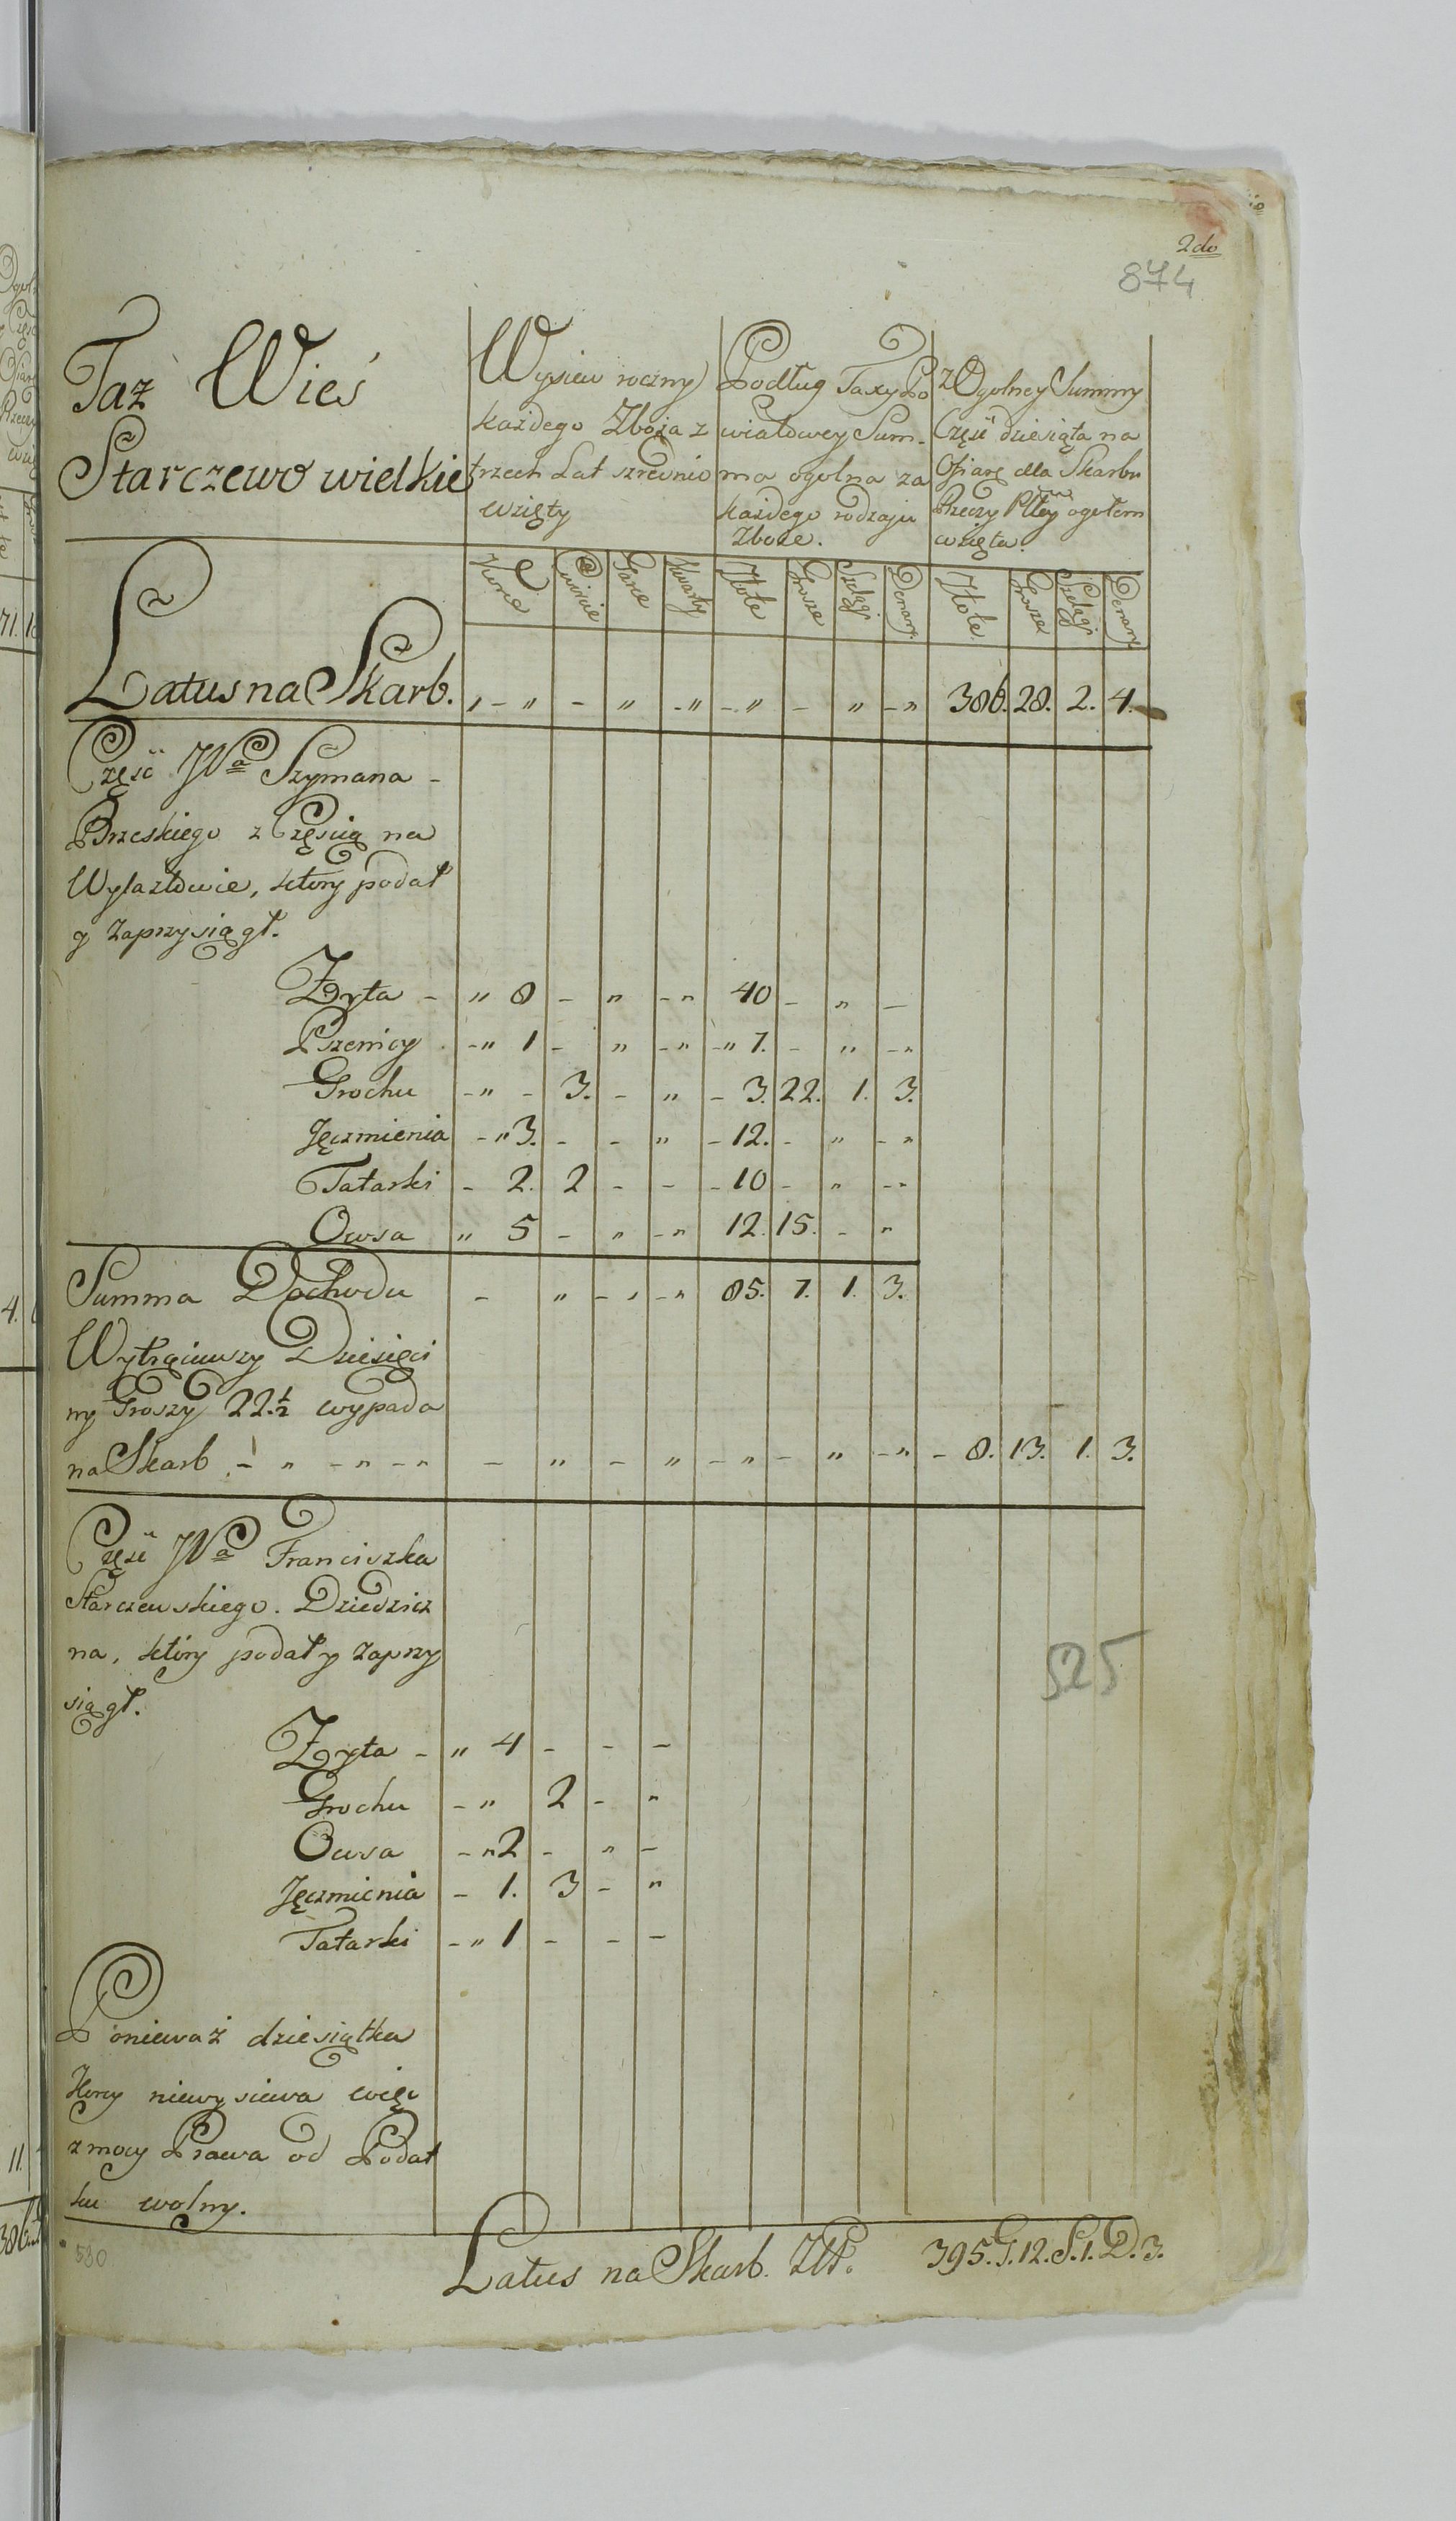 2do
874
Taż Wieś
Starczewo wielkie
Wysiew roczny
każdego Zboża z
trzech Lat szrednio
wzięty
Podług Taxy Po
wiatowey Sum-
ma ogolna za
każdego rodzaju
Zboże.
z Ogolney Summy
Część dziesiąta na
Ofiarę dla Skarbu
Rzeczy Pltey ogołem
wzięta.
Korce Cwircie Garce Kwarty Złote Grosze Szelągi Denary Złote Grosze Szelągi Denary
Latus na Skarb. , - " - " - " - " - " - " 386. 28. 2. 4.
Część JWa Szymana -
Brzeskiego z Częścią na
Wylazłowie, który podał
y zaprzysiągł.
Zyta - " 8 - " - " 40 - " -
Pszenicy - " 1 - " - " - " 7. - " - "
Grochu - " - 3. - " - 3. 22. 1. 3.
Jęczmienia - " 3. - - " - 12. - " - "
Tatarki - 2. 2 - - - 10 - " - "
Owsa " 5 - " - " 12. 15. - "
Summa Dochodu - " - , - " 85. 7. 1. 3.
Wytrąciwszy Dziesięci
ny Groszy 22.½ wypada
na Skarb - " - " - " - " - " - " - " - " - 8. 13. 1. 3.
Część JWa Franciszka
Starczewskiego. Dziedzicz
na, który podał y zaprzy
siągł.
Zyta - " 4 - - -
Grochu - " 2 - "
Owsa - " 2 - " -
Jęczmienia - 1. 3 - "
Tatarki - " 1 - - -
525
Ponieważ dziesiątka
Korcy niewysiewa więc
z mocy Prawa od Podat
ku wolny.
580
Latus na Skarb. Złł. 395. G. 12. S. 1. D. 3.